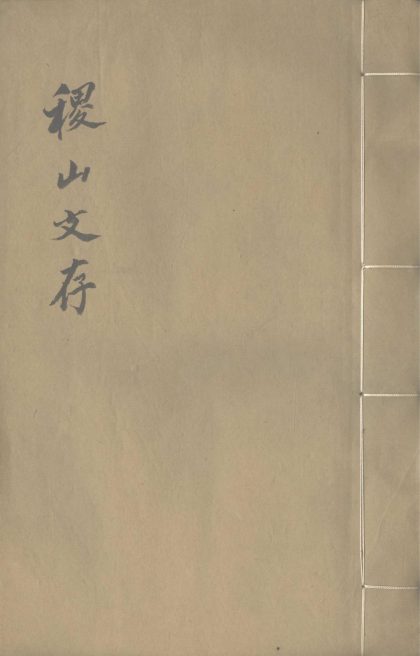 稷山文存